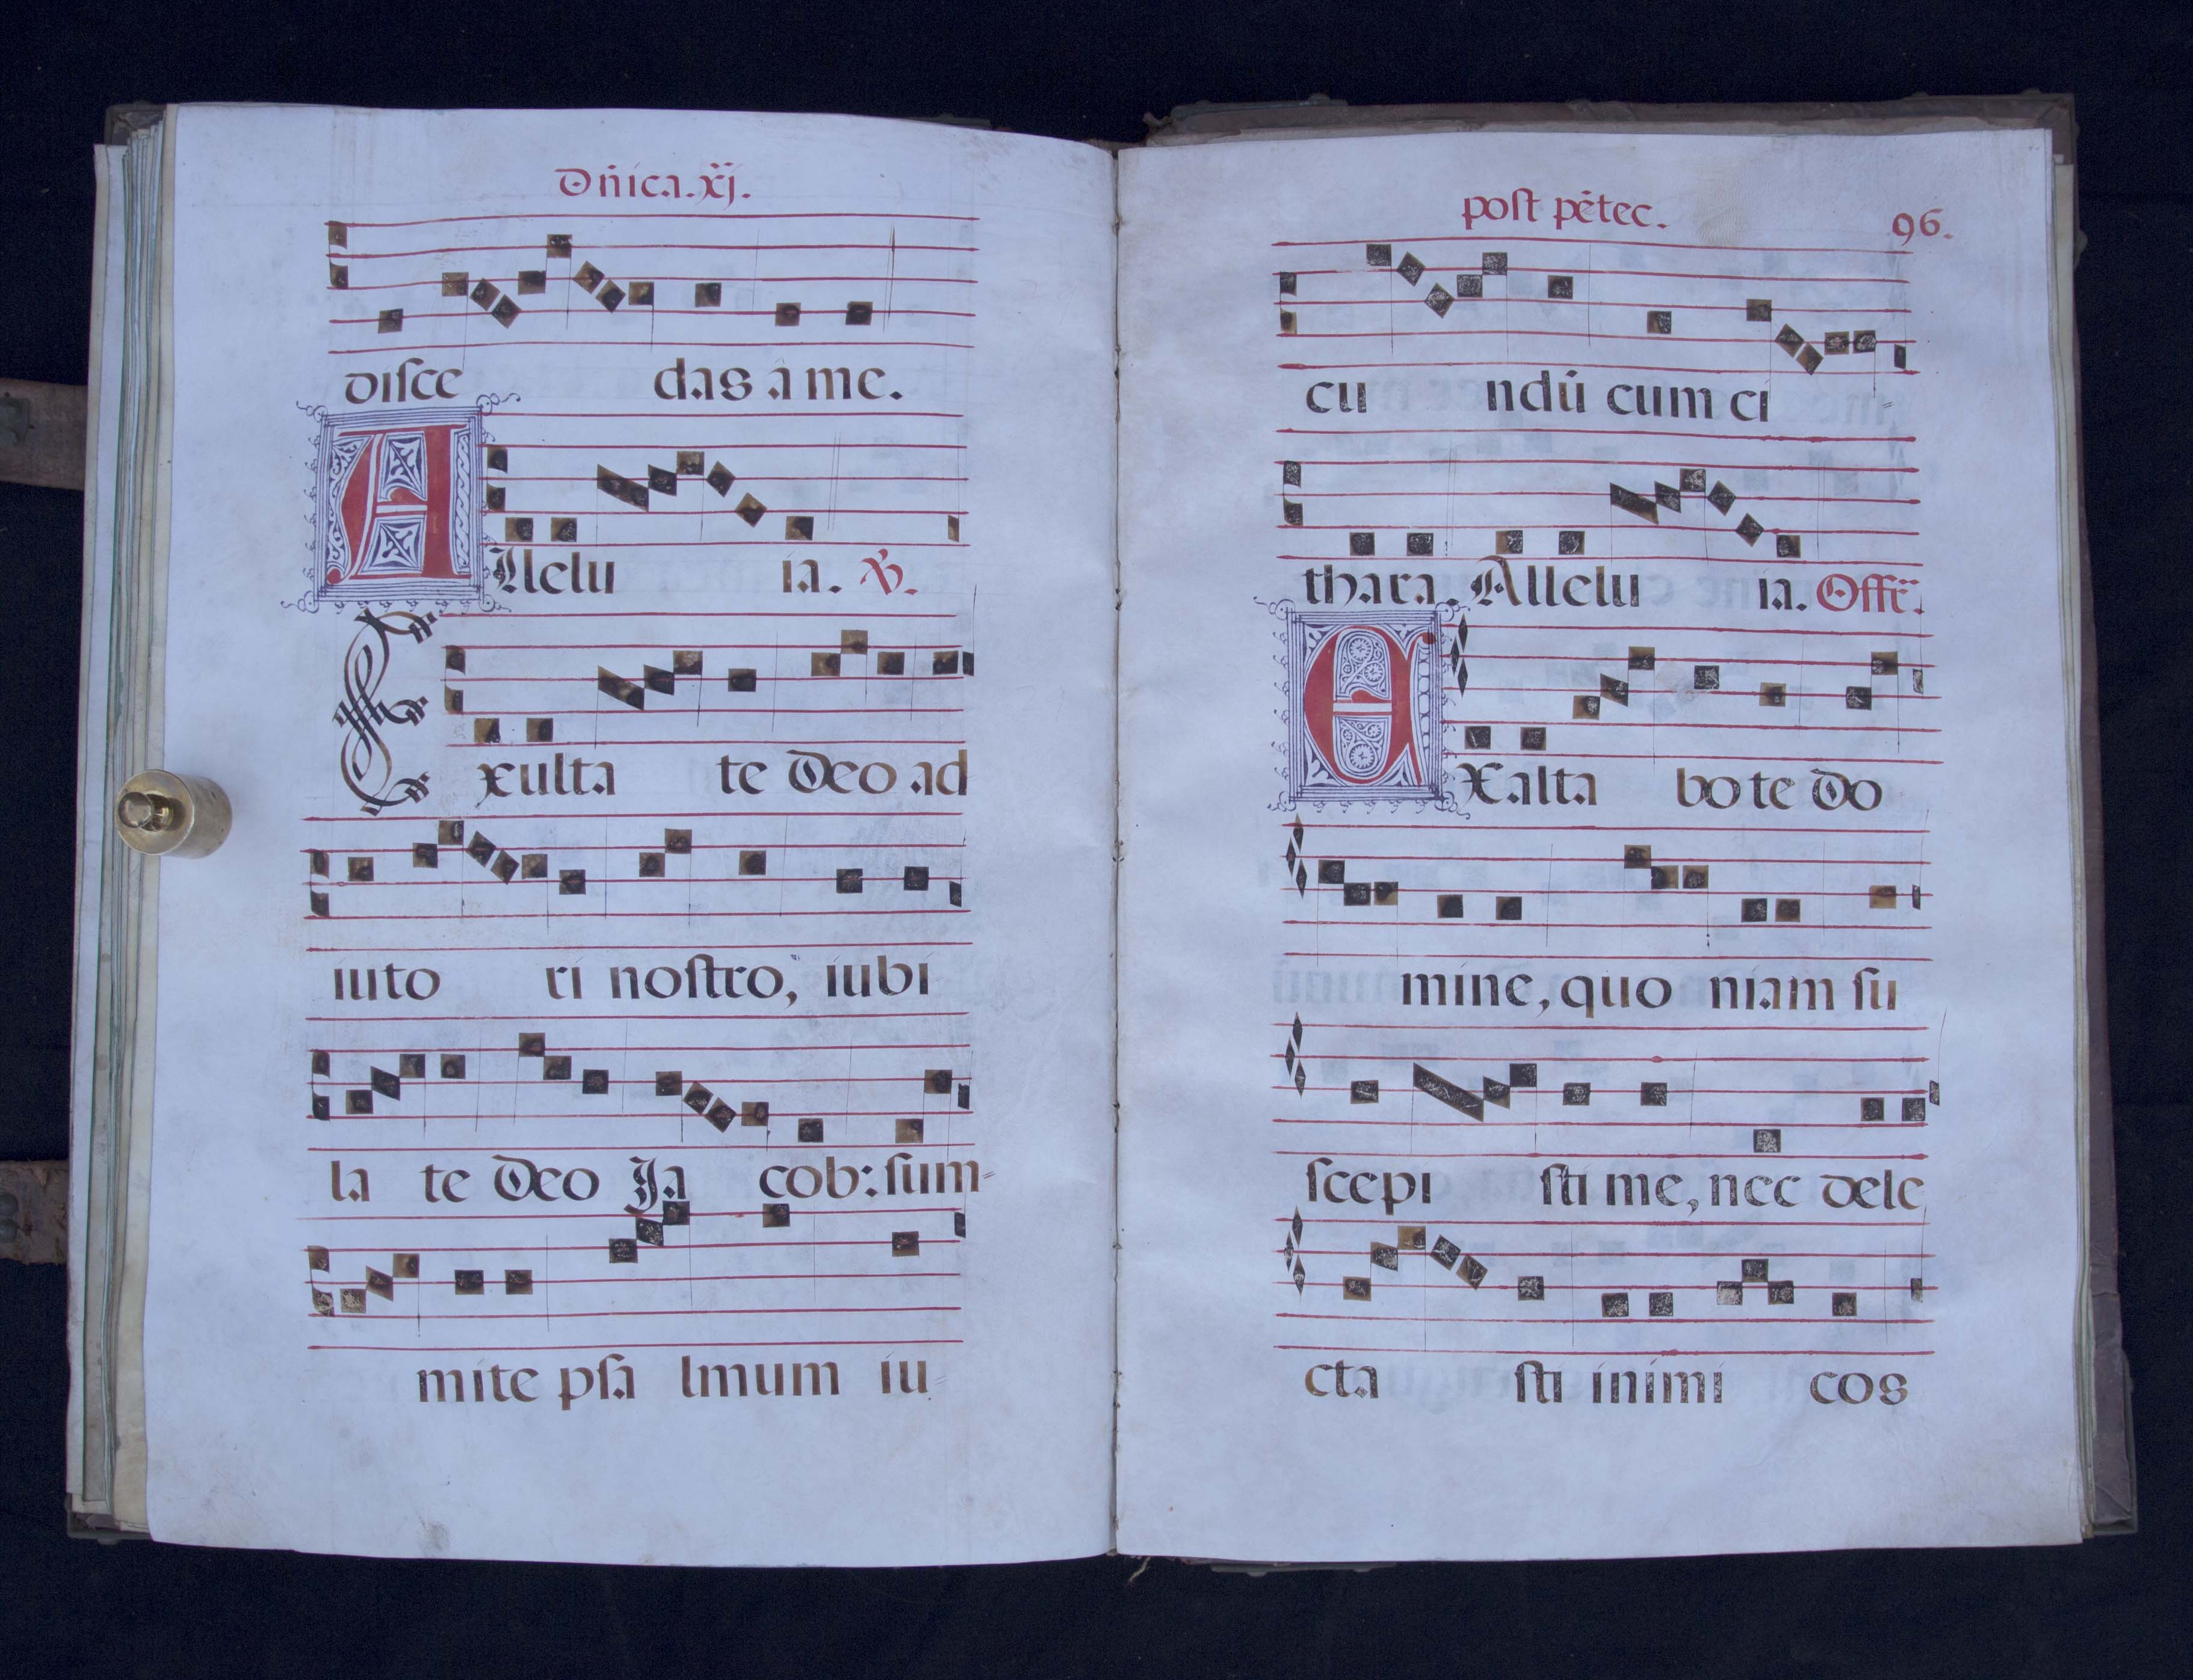 Dñica. xj.
disce das â me.
Allelu ia. ℣.
Exulta te Deo ad
iuto ri nostro, iubi
la te Deo Ja cob: sum-
mite psa lmum iu-
post pẽtec. 96.
cu ndũ cum ci -
thara. Allelu ia. Offr̃.
EXalta bo te Do
mine, quo niam su
scepi sti me, nec dele
cta sti inimi cos